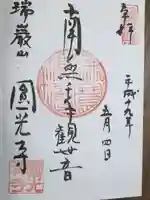 奉拝
平成十九年
五月四日
南無千手觀世音
瑞巌山
圓光寺